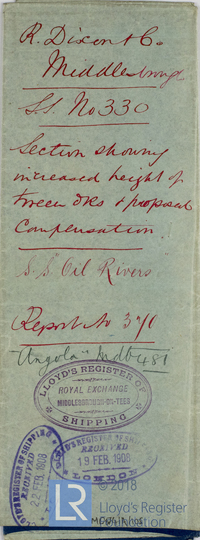 R. Dixon & Co.
Middlesbrough
S.S. No 330
Section showing
increased height of
tween dks & proposed
Compensation
S.S. "Oil Rivers"
Report No 3
Angola
LLOYD'S REGISTER OF SHIPPING
ROYAL EXCHANGE
MIDDLESBROUGH-ON-TEES
LLOYD'S REGISTER OF SHIPPING
RECEIVED
19 FEB. 1906
LONDON
LLOYD'S REGISTER OF SHIPPING
RECEIVED
22 FEB. 1906
© 2018
LR
Lloyd's Register
Foundation